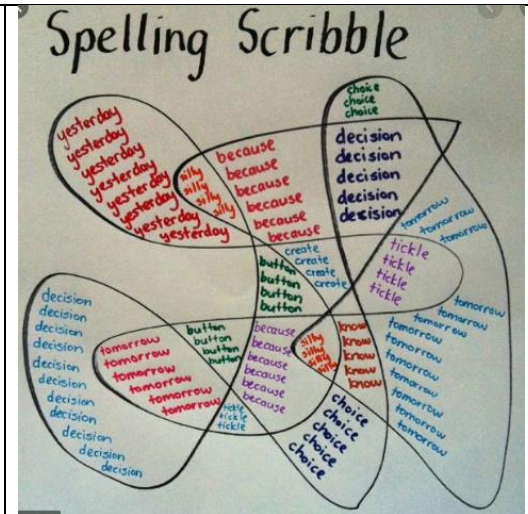 Spelling Scribble
choice
choice
choice
yesterday
yesterday
yesterday
yesterday
yesterday
yesterday
yesterday
yesterday
silly
silly
silly
silly
because
because
because
because
because
because
decision
decision
decision
decision
decision
tomorrow
tomorrow
tomorrow
tickle
tickle
tickle
tickle
create
create
create
create
button
button
button
button
decision
decision
decision
decision
decision
decision
decision
decision
decision
decision
decision
tomorrow
tomorrow
tomorrow
tomorrow
tomorrow
button
button
button
button
because
because
because
because
because
because
silly
silly
silly
silly
know
know
know
know
know
tomorrow
tomorrow
tomorrow
tomorrow
tomorrow
tomorrow
tomorrow
tomorrow
tomorrow
tomorrow
tomorrow
tickle
tickle
tickle
choice
choice
choice
choice
choice